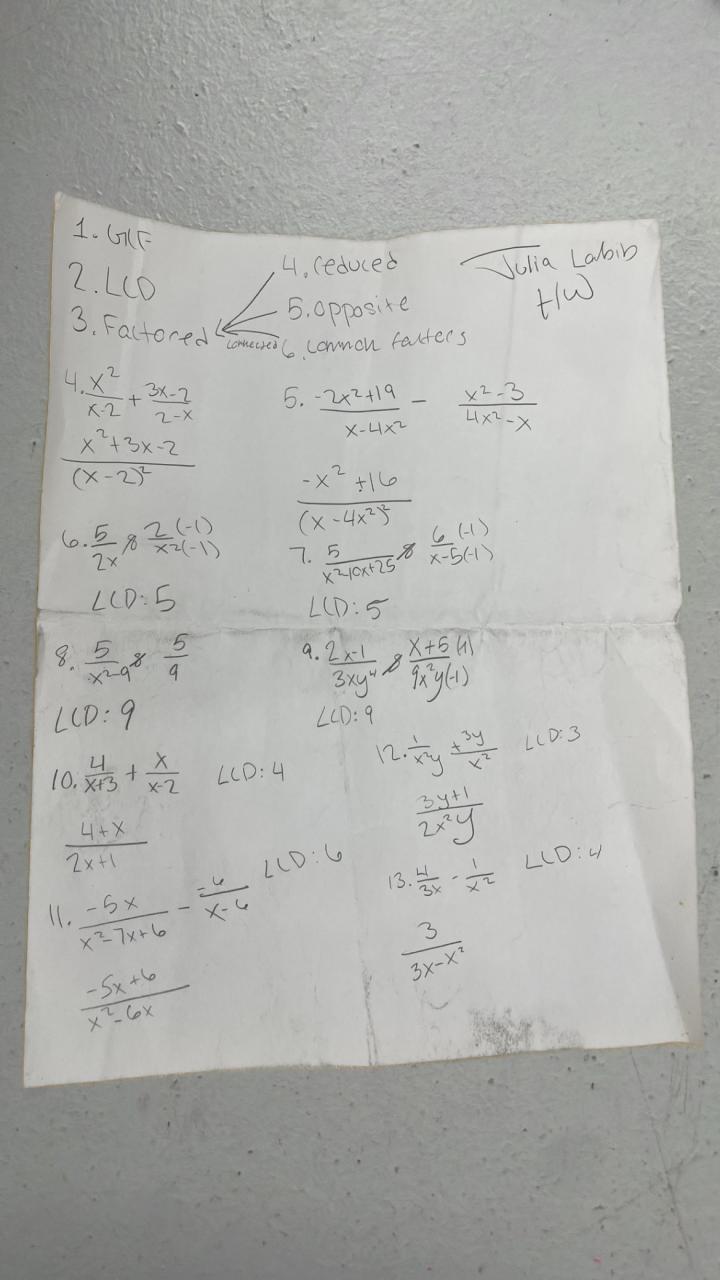 1. GCF
2. LCD
3. Factored
4. reduced
5. opposite
connected 6. common factors
Julia Labib
HW
4. x²/x-2 + 3x-2/2-x
x²+3x-2/(x-2)²
5. -2x²+19/x-4x² - x²-3/4x²-x
-x²+16/(x-4x²)²
6. 5/2x & 2(-1)/x2(-1)
LCD: 5
7. 5/x²-10x+25 & 6(-1)/x-5(-1)
LCD: 5
8. 5/x²-9 & 5/9
LCD: 9
9. 2x-1/3xy⁴ & x+5(-1)/9x²y(-1)
LCD: 9
10. 4/x+3 + x/x-2 LCD: 4
4+x/2x+1
11. -5x/x²-7x+6 - -6/x-6 LCD: 6
-5x+6/x²-6x
12. 1/x²y + 3y/x² LCD: 3
3y+1/2x²y
13. 4/3x - 1/x² LCD: 4
3/3x-x²